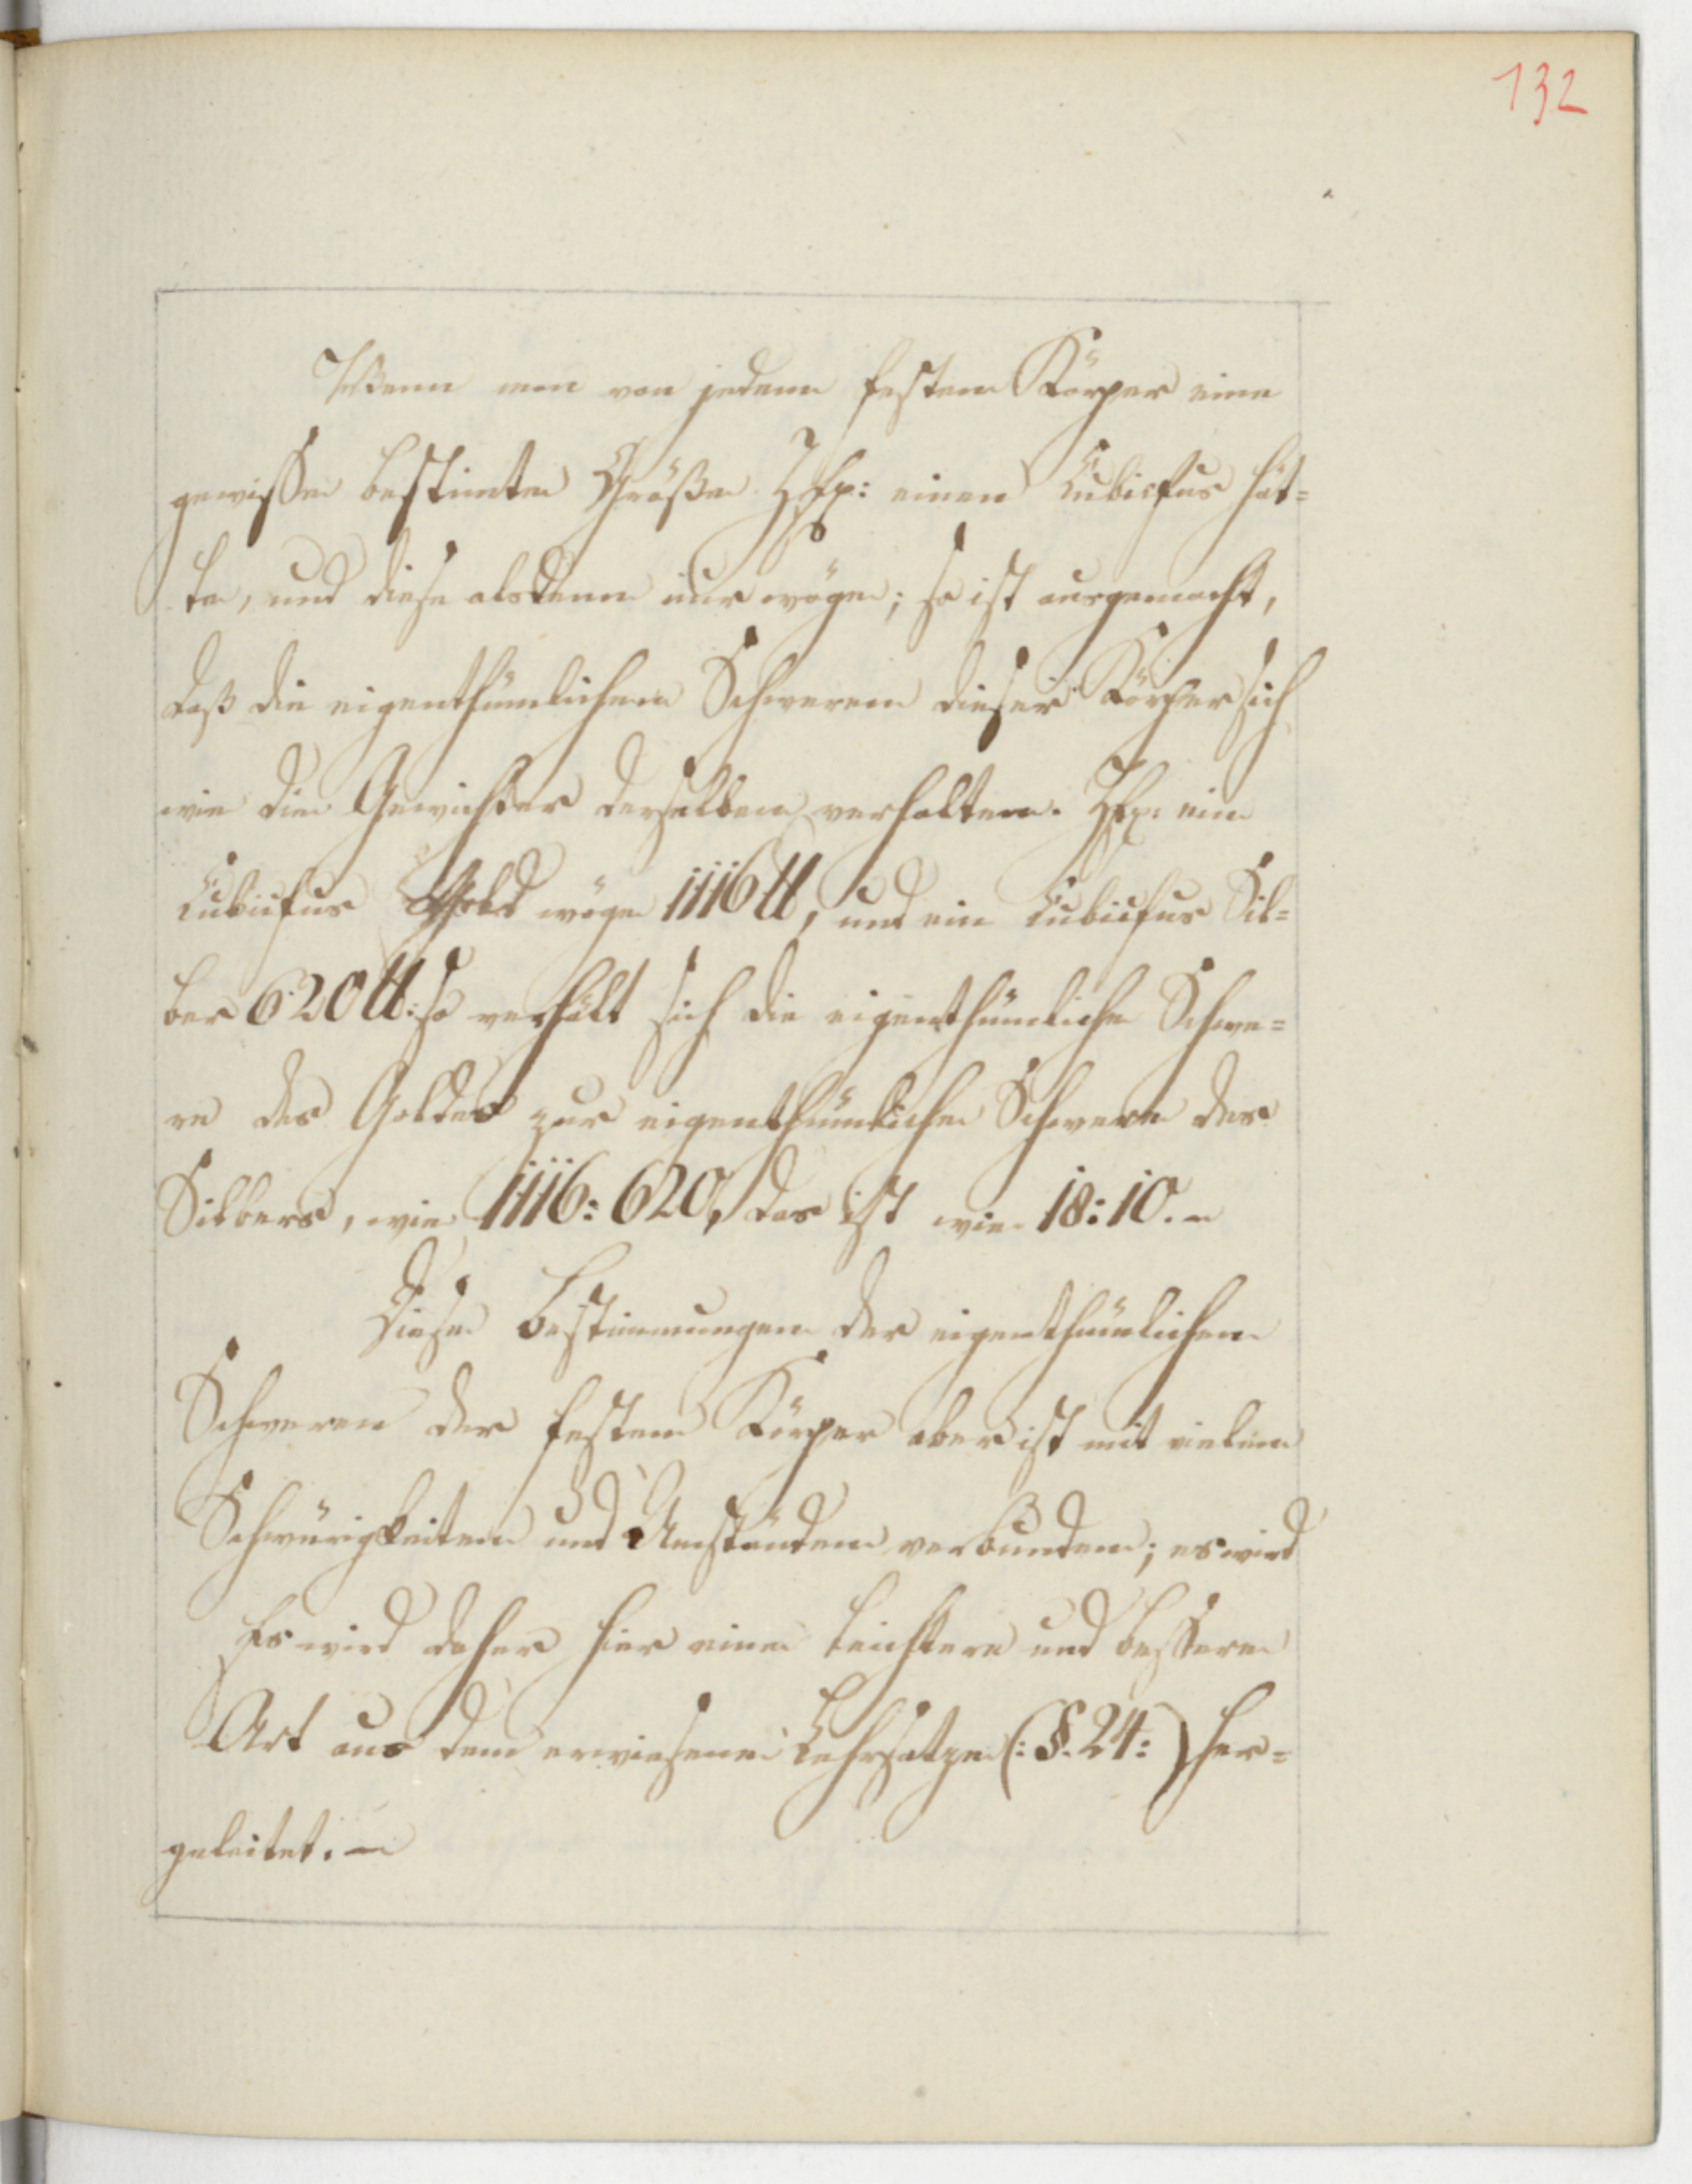 132
Wenn man von jedem festen Körper eine
gewisse bestimte Größe Zfh: einen Cubicfus hät=
te, und diese alsdenn nur wöge; so ist ausgemacht,
daß die eigenthümlichen Schweren dieser Körper sich
wie die Gewichter derselben verhalten. Zfh: ein
Cubicfus Gold wöge 1116 ℔, und ein Cubicfus Sil=
ber 620 ℔: so verhält sich die eigenthümliche Schwe=
re des Goldes zur eigenthümlichen Schwere des
Silbers, wie 1116: 620, das ist wie 18: 10. –
Diese Bestimmungen der eigenthümlichen
Schweren der festen Körper aber ist mit vielen
Schwürigkeiten und Umständen verbunden; es wird
Es wird daher hier eine leichtere und bessere
Art aus dem erwiesenen Lehrsatze (: §. 24: ) her=
geleitet. –